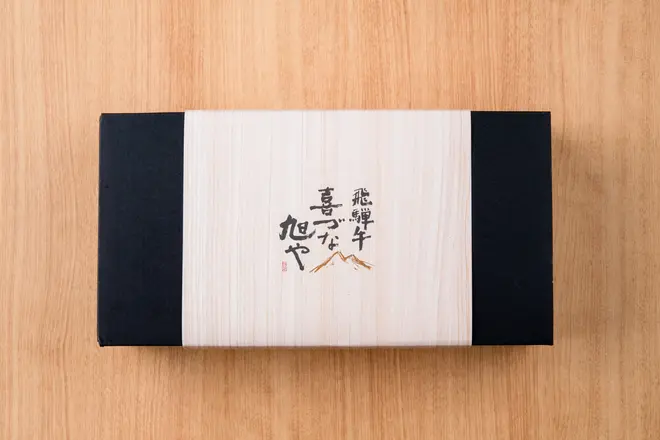 飛騨牛
喜づな
旭や